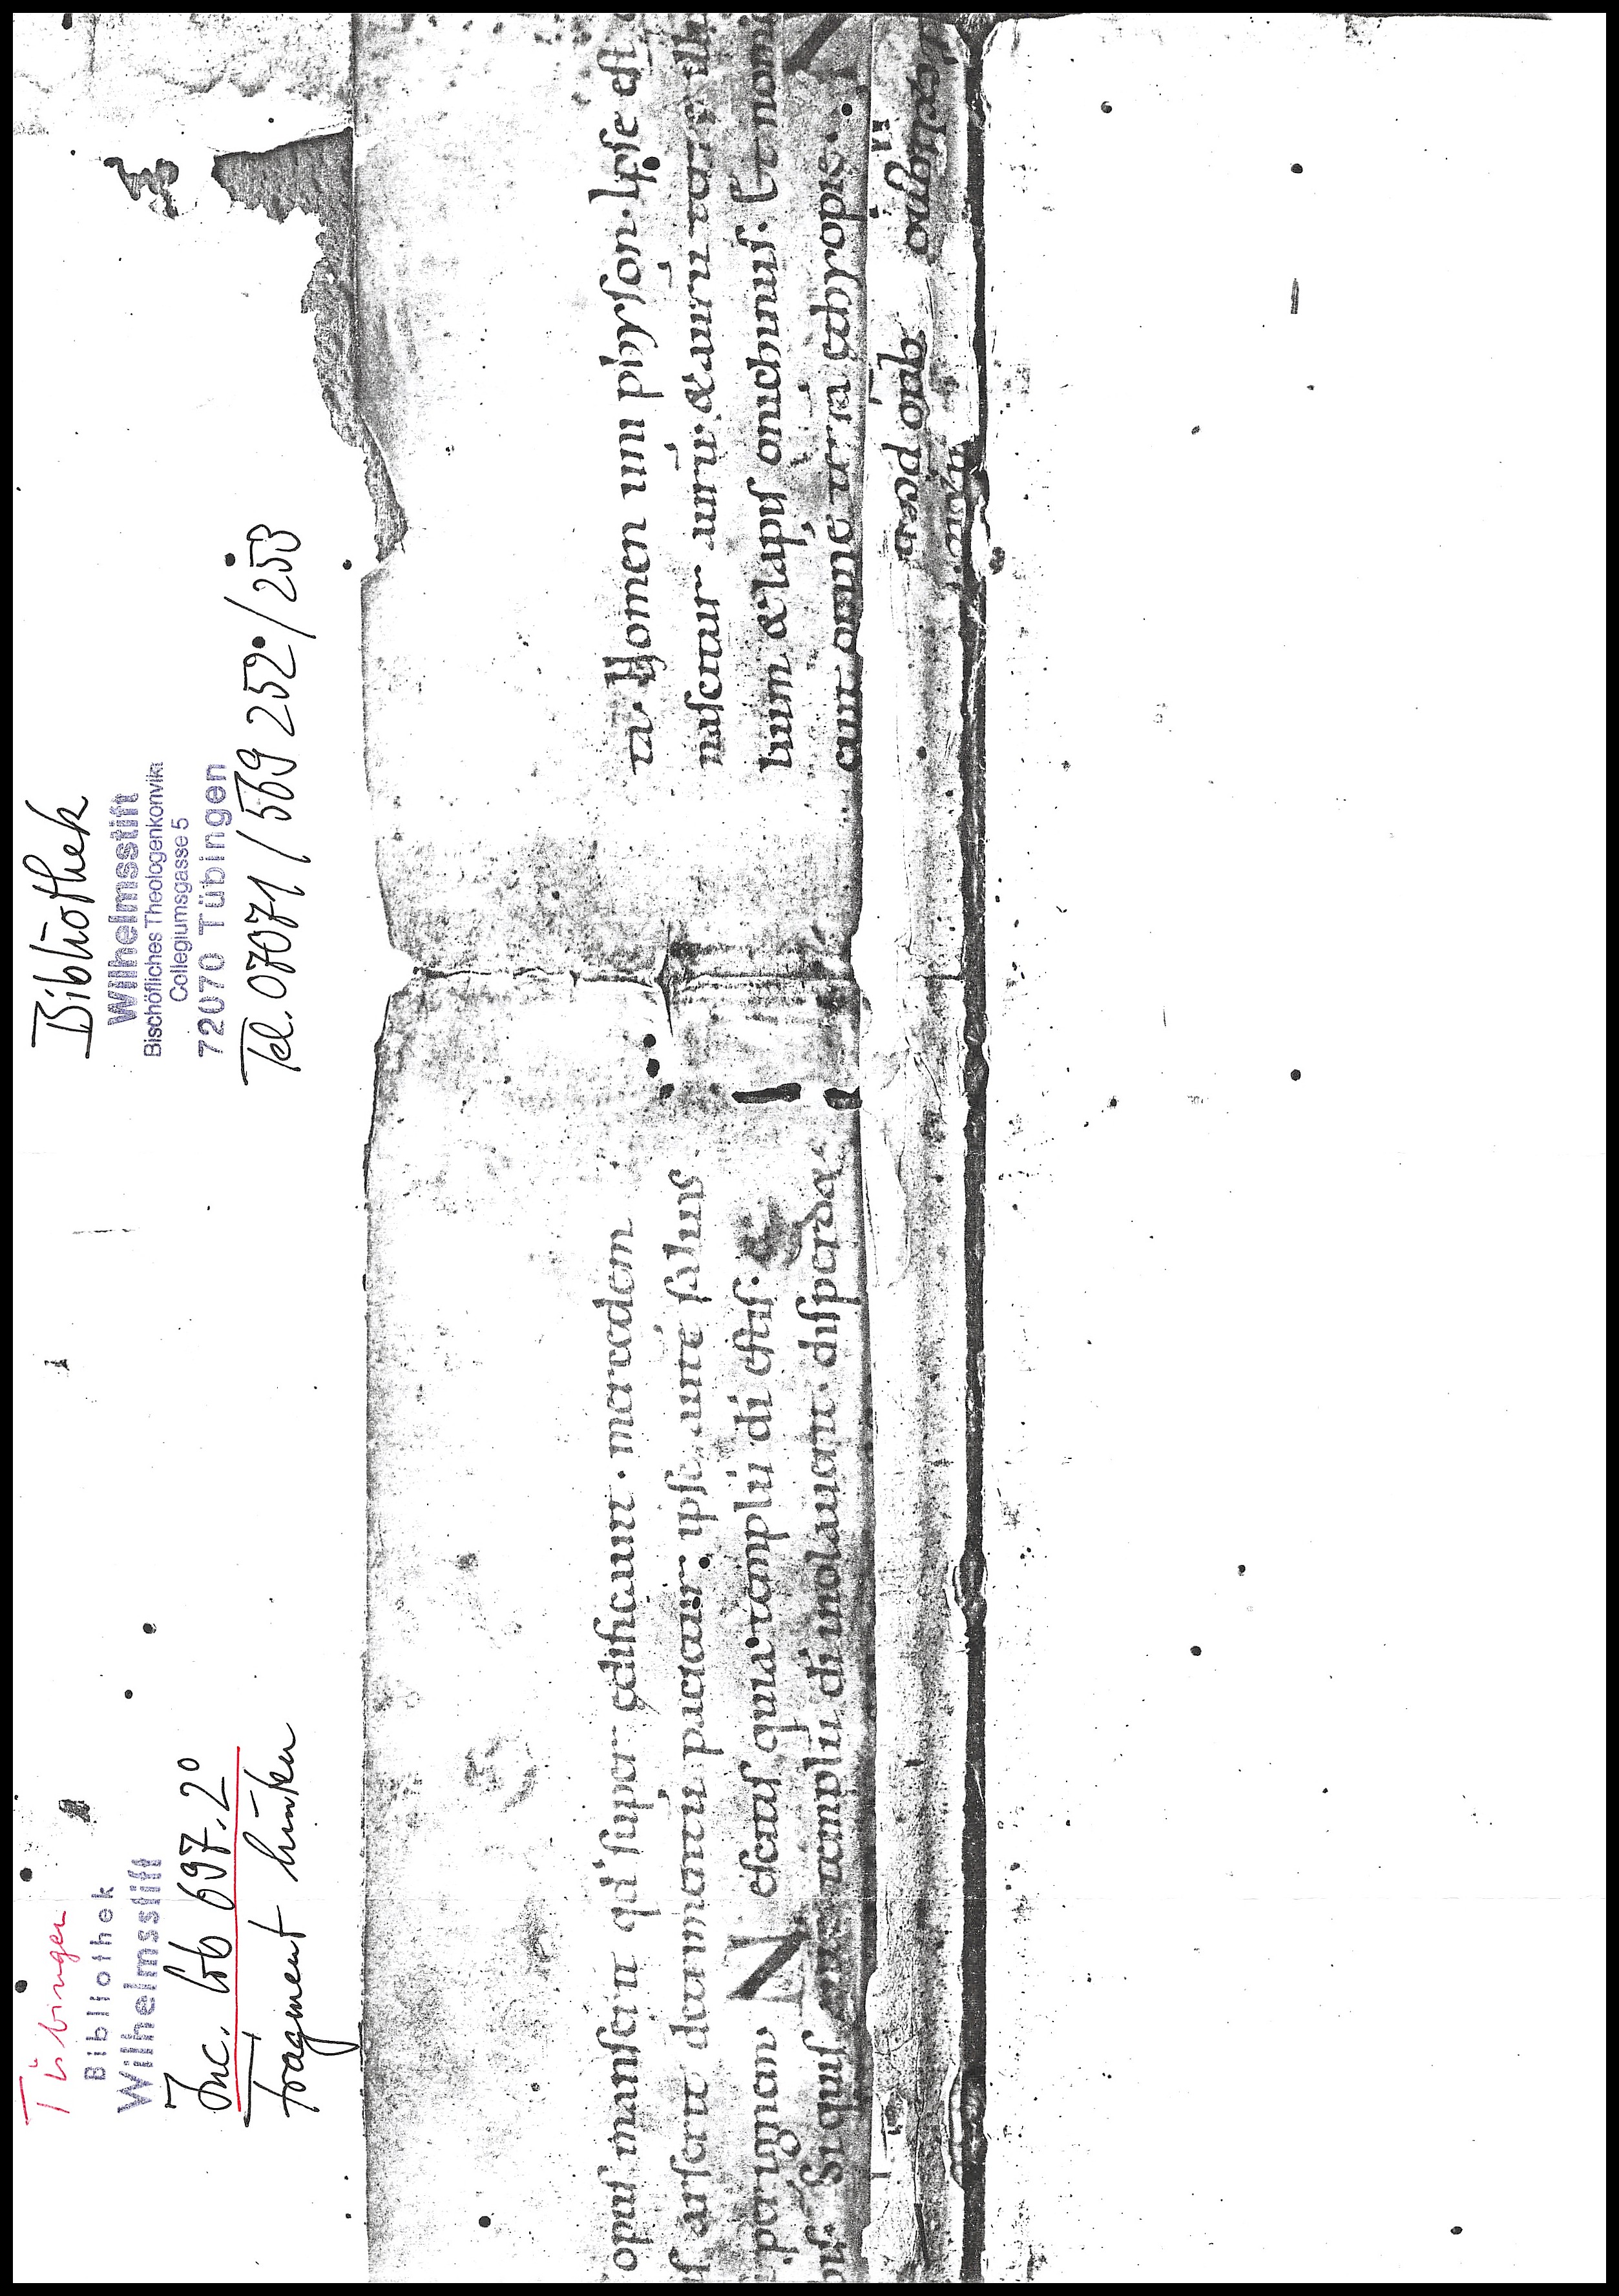 Tübingen
Bibliothek
Wilhelmsstift
Inc. Gb 697. 2°
Fragment hinten
Bibliothek
Wilhelmsstift
Bischöfliches Theologenkonvikt
Collegiumsgasse 5
72070 Tübingen
Tel. 07071 / 569 252 / 253
opuſ manſerit qd' ſuper ędificauit. mercedem
ſ arſerit detrimentū pacietur. ipſe autē ſaluus
per ignem Neſcitiſ quia templū dī eſtiſ. &
Si quiſ templū dī uiolauerit. diſperdet
ta. Nomen uni phyſon. Ipſe eſt
naſcitur aurū. & aurū
lium & lapiſ onichinuſ. Et nomi
cuit omnē terrā ęthyopię.